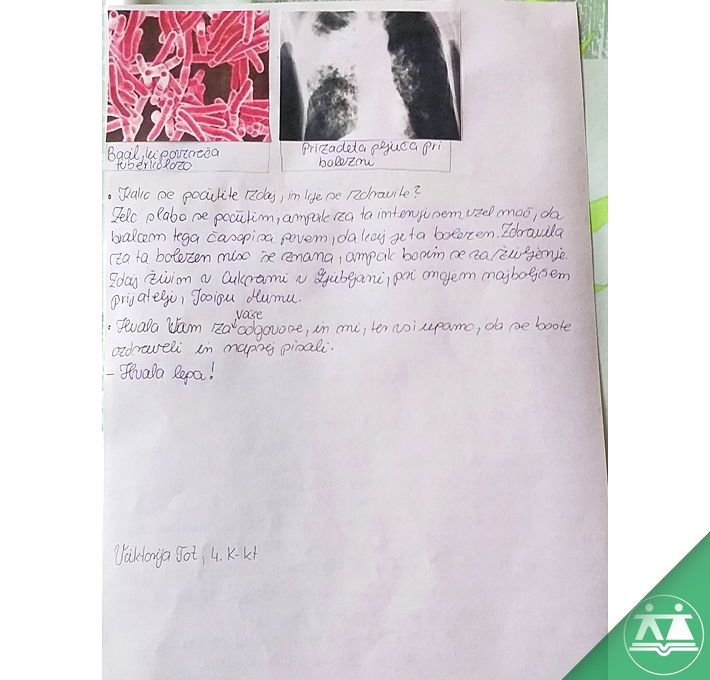 Bacil, ki povzroča
tuberkolozo
Prizadeta pljuča pri
bolezni
• Kako se počutite zdaj, in kje se zdravite?
Zelo slabo se počutim, ampak za ta intervju sem vzel moč, da
bralcem tega časopisa povem, da kaj je ta bolezen. Zdravila
za ta bolezen niso še znana, ampak borim se za življenje.
Zdaj živim v Cukrarni v Ljubljani, pri mojem najboljšem
prijatelju, Josipu Murnu.
• Hvala Vam za vaše odgovore, in mi, ter vsi upamo, da se boste
ozdraveli in naprej pisali.
- Hvala lepa!
Viktorija Tot, 4. K-kt